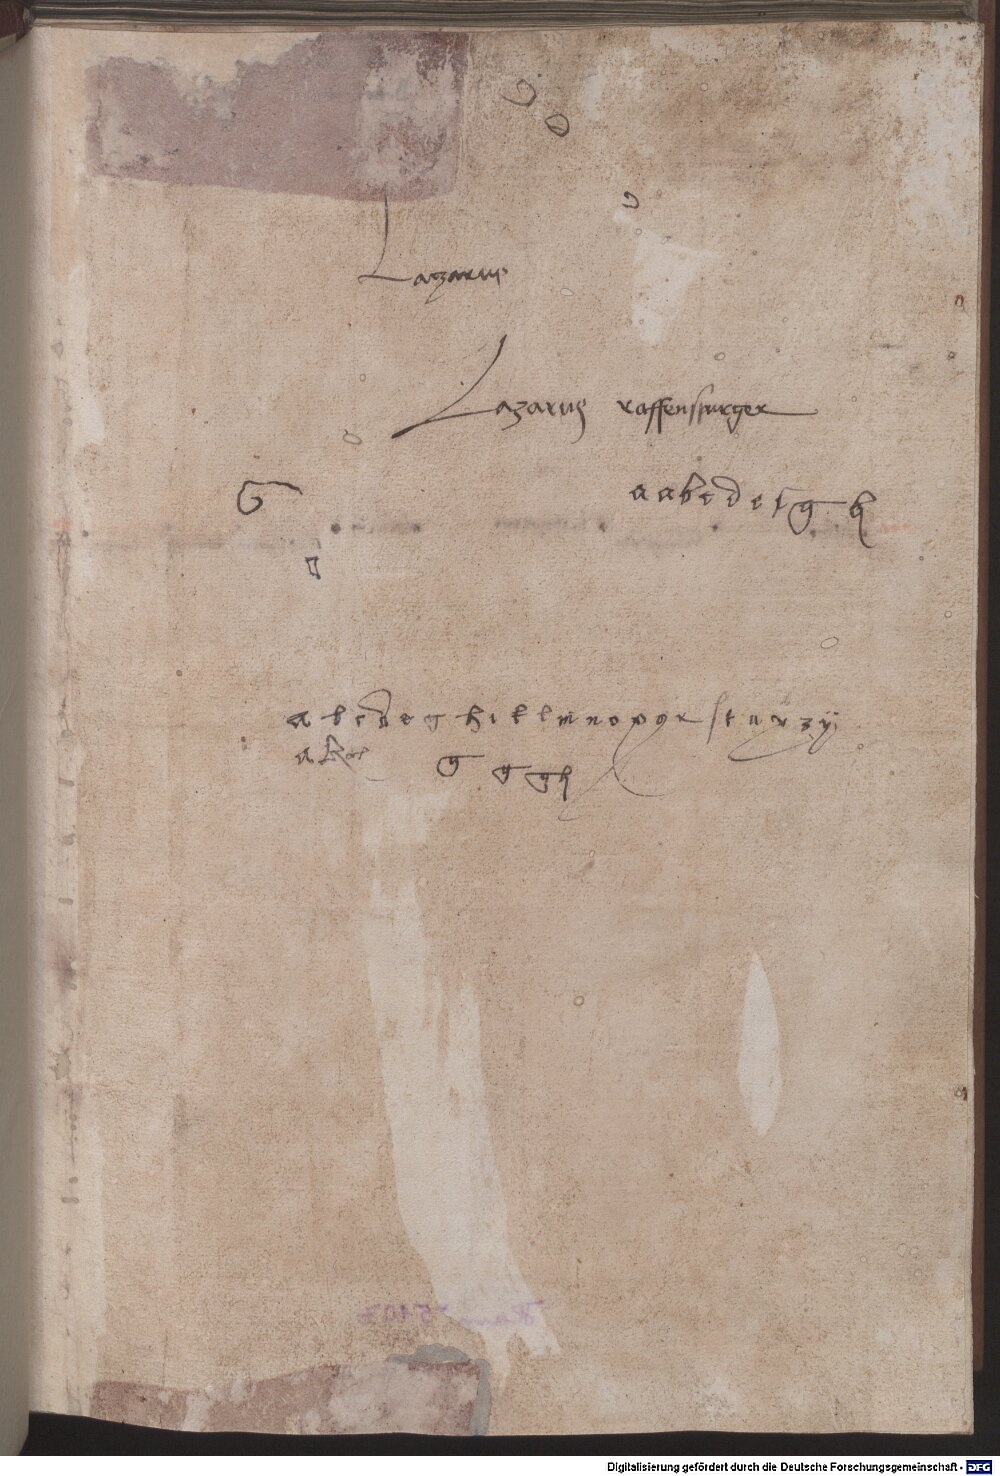 Lazarus
Lazarus raffenspurger
G
a a b c d e f g h
a b c d e g h i k l m n o p q r s t u x z ÿ
a
g g g h
Digitalisierung gefördert durch die Deutsche Forschungsgemeinschaft - DFG